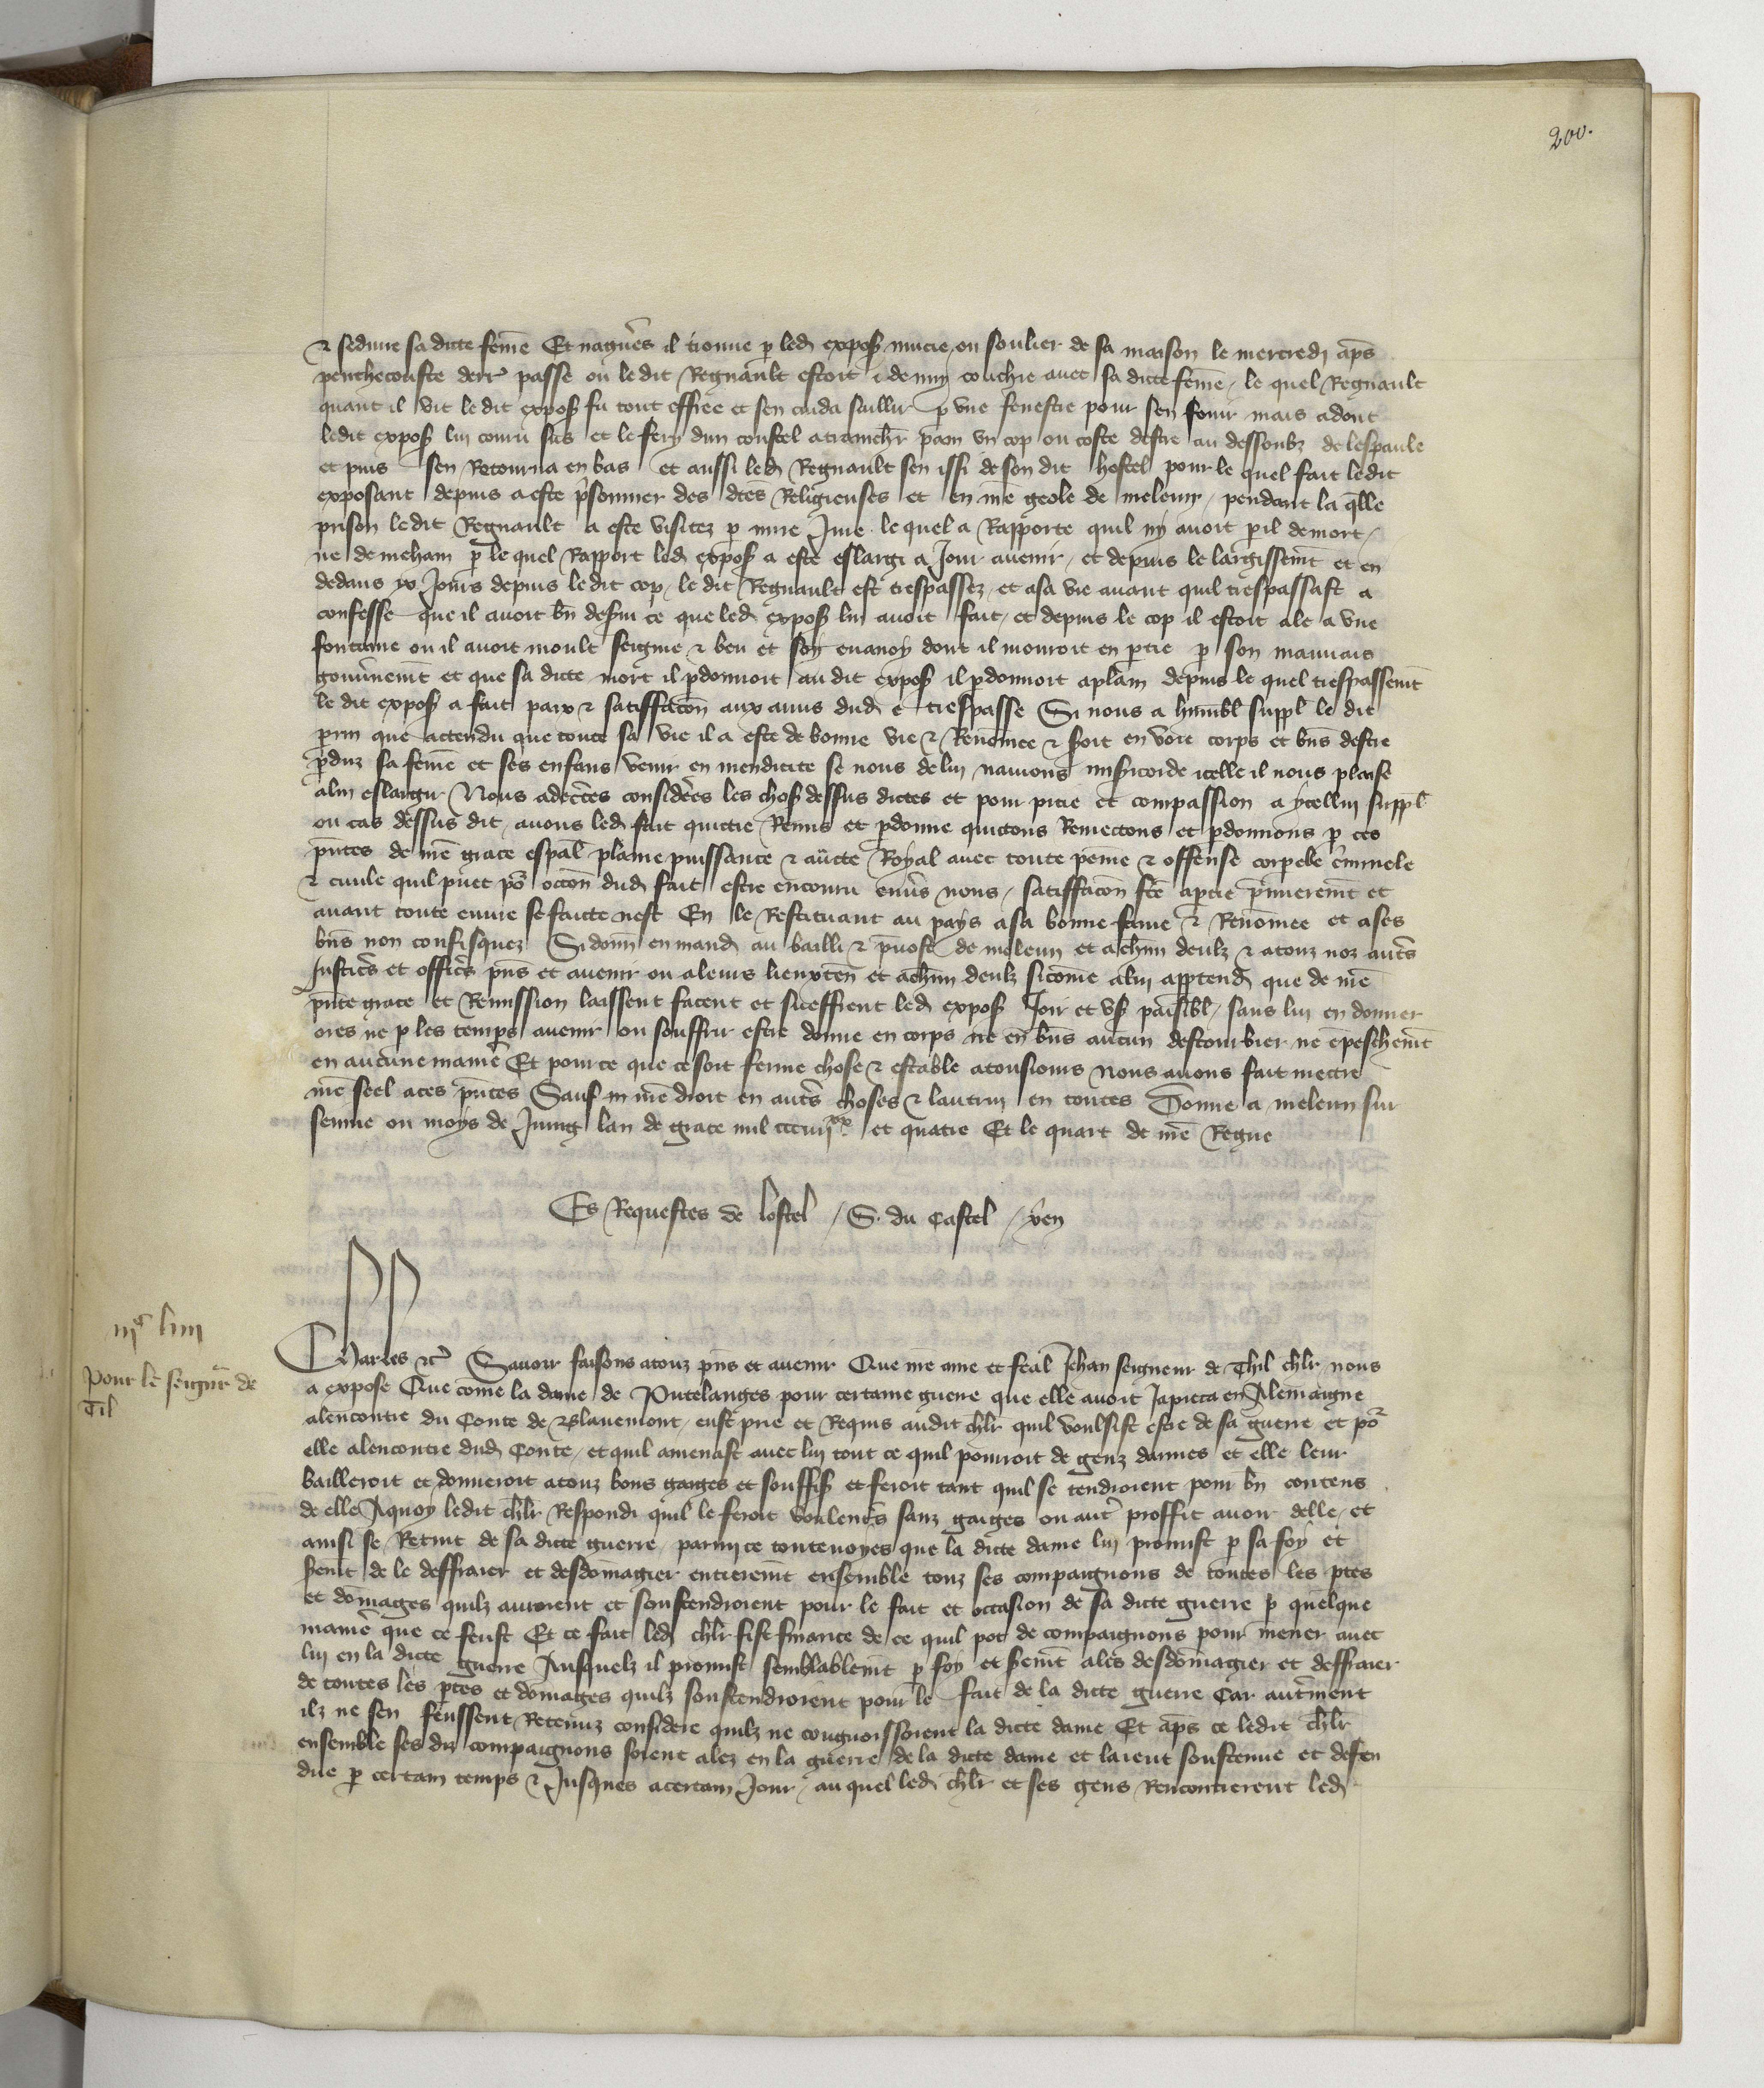 200.
& seduire sa dicte feme Et nagueres il trouue p led expos mucie ou soulier de sa maison le mercredi aps
penthecouste derr passe ou le dit Regnault estoit de nuy couchie auec sa dicte feme, le quel Regnault
quant il vit le dit expos fu tout effree et sen cuida saillir p vne fenestre pour sen fouir mais adont
ledit expos lui couru sus et le fery dun coustel atrancher pain vn cop ou coste destre au dessoubz de lespaule
et puis sen Retourna en bas et aussi led Regnault sen issi de son dit hostel pour le quel fait ledit
exposant depuis a este prsonnier des dces Religieuses et en nre geole de meleun, pendant la qlle
prison ledit Regnault a este visitez p mire Jure le quel a Rapporte quil ny auoit pil de mort,
ne de mehain p le quel Rapport led expos a este eslargi a Jour auenir, et depuis le largissemt et en
dedans xv Jours depuis ledit cop, le dit Regnault est trespassez, et asa vie auant quil trespassast a
confesse que il auoit bn deserui ce que led expos lui auoit fait, et depuis le cop il estoit ale a vne
fontaine ou il auoit moult seigne & beu et soy euanoy dont il mouroit en ptie p son mauuais
gouuernemt et que sa dicte mort il pdonnoit au dit expos il pdonnoit aplain depuis le quel trespassemt
le dit expos a fait paix & satisffacon aux amis dud trespasse Si nous a humbl suppl le dit
prm que actendu que toute sa vie il a este de bonne vie & Renomee & soit en voie corps et bns destre
pduz sa feme et ses enfans venir en mendicite se nous de lui nauions misericorde icelle il nous plaise
alui eslargir Nous adecrtes considerees les chos dessus dictes et pour pitie et compassion a ycellui suppl
ou cas dessus dit, auons led fait quictie Remis et pdonne quictons Remectons et pdonnons p ces
pntes de nre grace espal plaine puissance & aucte Royal auec toute peine & offense corpele criminele
& ciuile quil puet por occon dud fait estre encouru enuers nous, satisffacon fte aptie primieremt et
auant toute euure se faicte nest En le Restituant au pays asa bonne fame & Renomee et ases
bns non confisquez Si donn en mand au bailli & preuost de meleun et achun deulz & atouz noz autrs
Justicrs et officrs pns et auenir ou aleurs lieuxten et achun deulz sicome alui apptend que de nre
pnte grace et Remission laissent facent et sueffrent led expos Joir et vs paisibl, sans lui en donner
ores ne p les temps auenir ou souffrir estre donne en corps ne en bns aucun destourbier ne epeschemt
en aucune manie Et pour ce que ce soit ferme chose & estable atousiours Nous auons fait mectre
nre seel aces pntes Sauf nre droit en autrs choses & lautruy en toutes Donne a meleun sur
seinne ou moys de Juing lan de grace mil ccciiijxx et quatre Et le quart de nre Regne
Es Requestes de lostel / S. du Castel / yen
iijc liiij
Pour le seignr de
Til
Charles &c Sauoir faisons atouz pns et auenir Que nre ame et feal Jehan seigneur de Thil chlr nous
a expose Que come la dame de Putelanges pour certaine guerre que elle auoit Japieca en Alemaigne
alencontre du Conte de Blanemont, eust prie et Requis audit chlr quil voulsist estre de sa guerre et por
elle alencontre dud Conte, et quil amenast auec lui tout ce quil pourroit de genz darmes et elle leur
bailleroit et donneroit atouz bons gaiges et souffis et feroit tant quil se tendroient pour bn contens
de elle Aquoy ledit chlr Respondi quil le feroit voulentrs sanz gaiges ou autr proffit auoir delle, et
ainsi se Retint de sa dicte guerre, parmi ce toutesuoyes que la dicte dame lui promist p sa foy et
sermt de le deffraier et desdomagier entieremt ensemble touz ses compaignons de toutes les ptes
et domages quilz auroient et soustendroient pour le fait et occasion de sa dicte guerre p quelque
manie que ce feust Et ce fait led chlr fist finance de ce quil pot de compaignons pour mener auec
lui en la dicte guerre Ausquelz il promist semblablemt p foy et sermt ales desdomagier et deffraier
de toutes les ptes et domages quilz soustendroient pour le fait de la dicte guerre Car autrment
ilz ne sen feussent Retenuz considere quilz ne congnoissoient la dicte dame Et aps ce ledit chlr
ensemble ses diz compaignons soient alez en la guerre de la dicte dame et laient soustenue et defen
due p certain temps & Jusques acertain Jour, au quel led chlr et ses gens Rencontrerent led